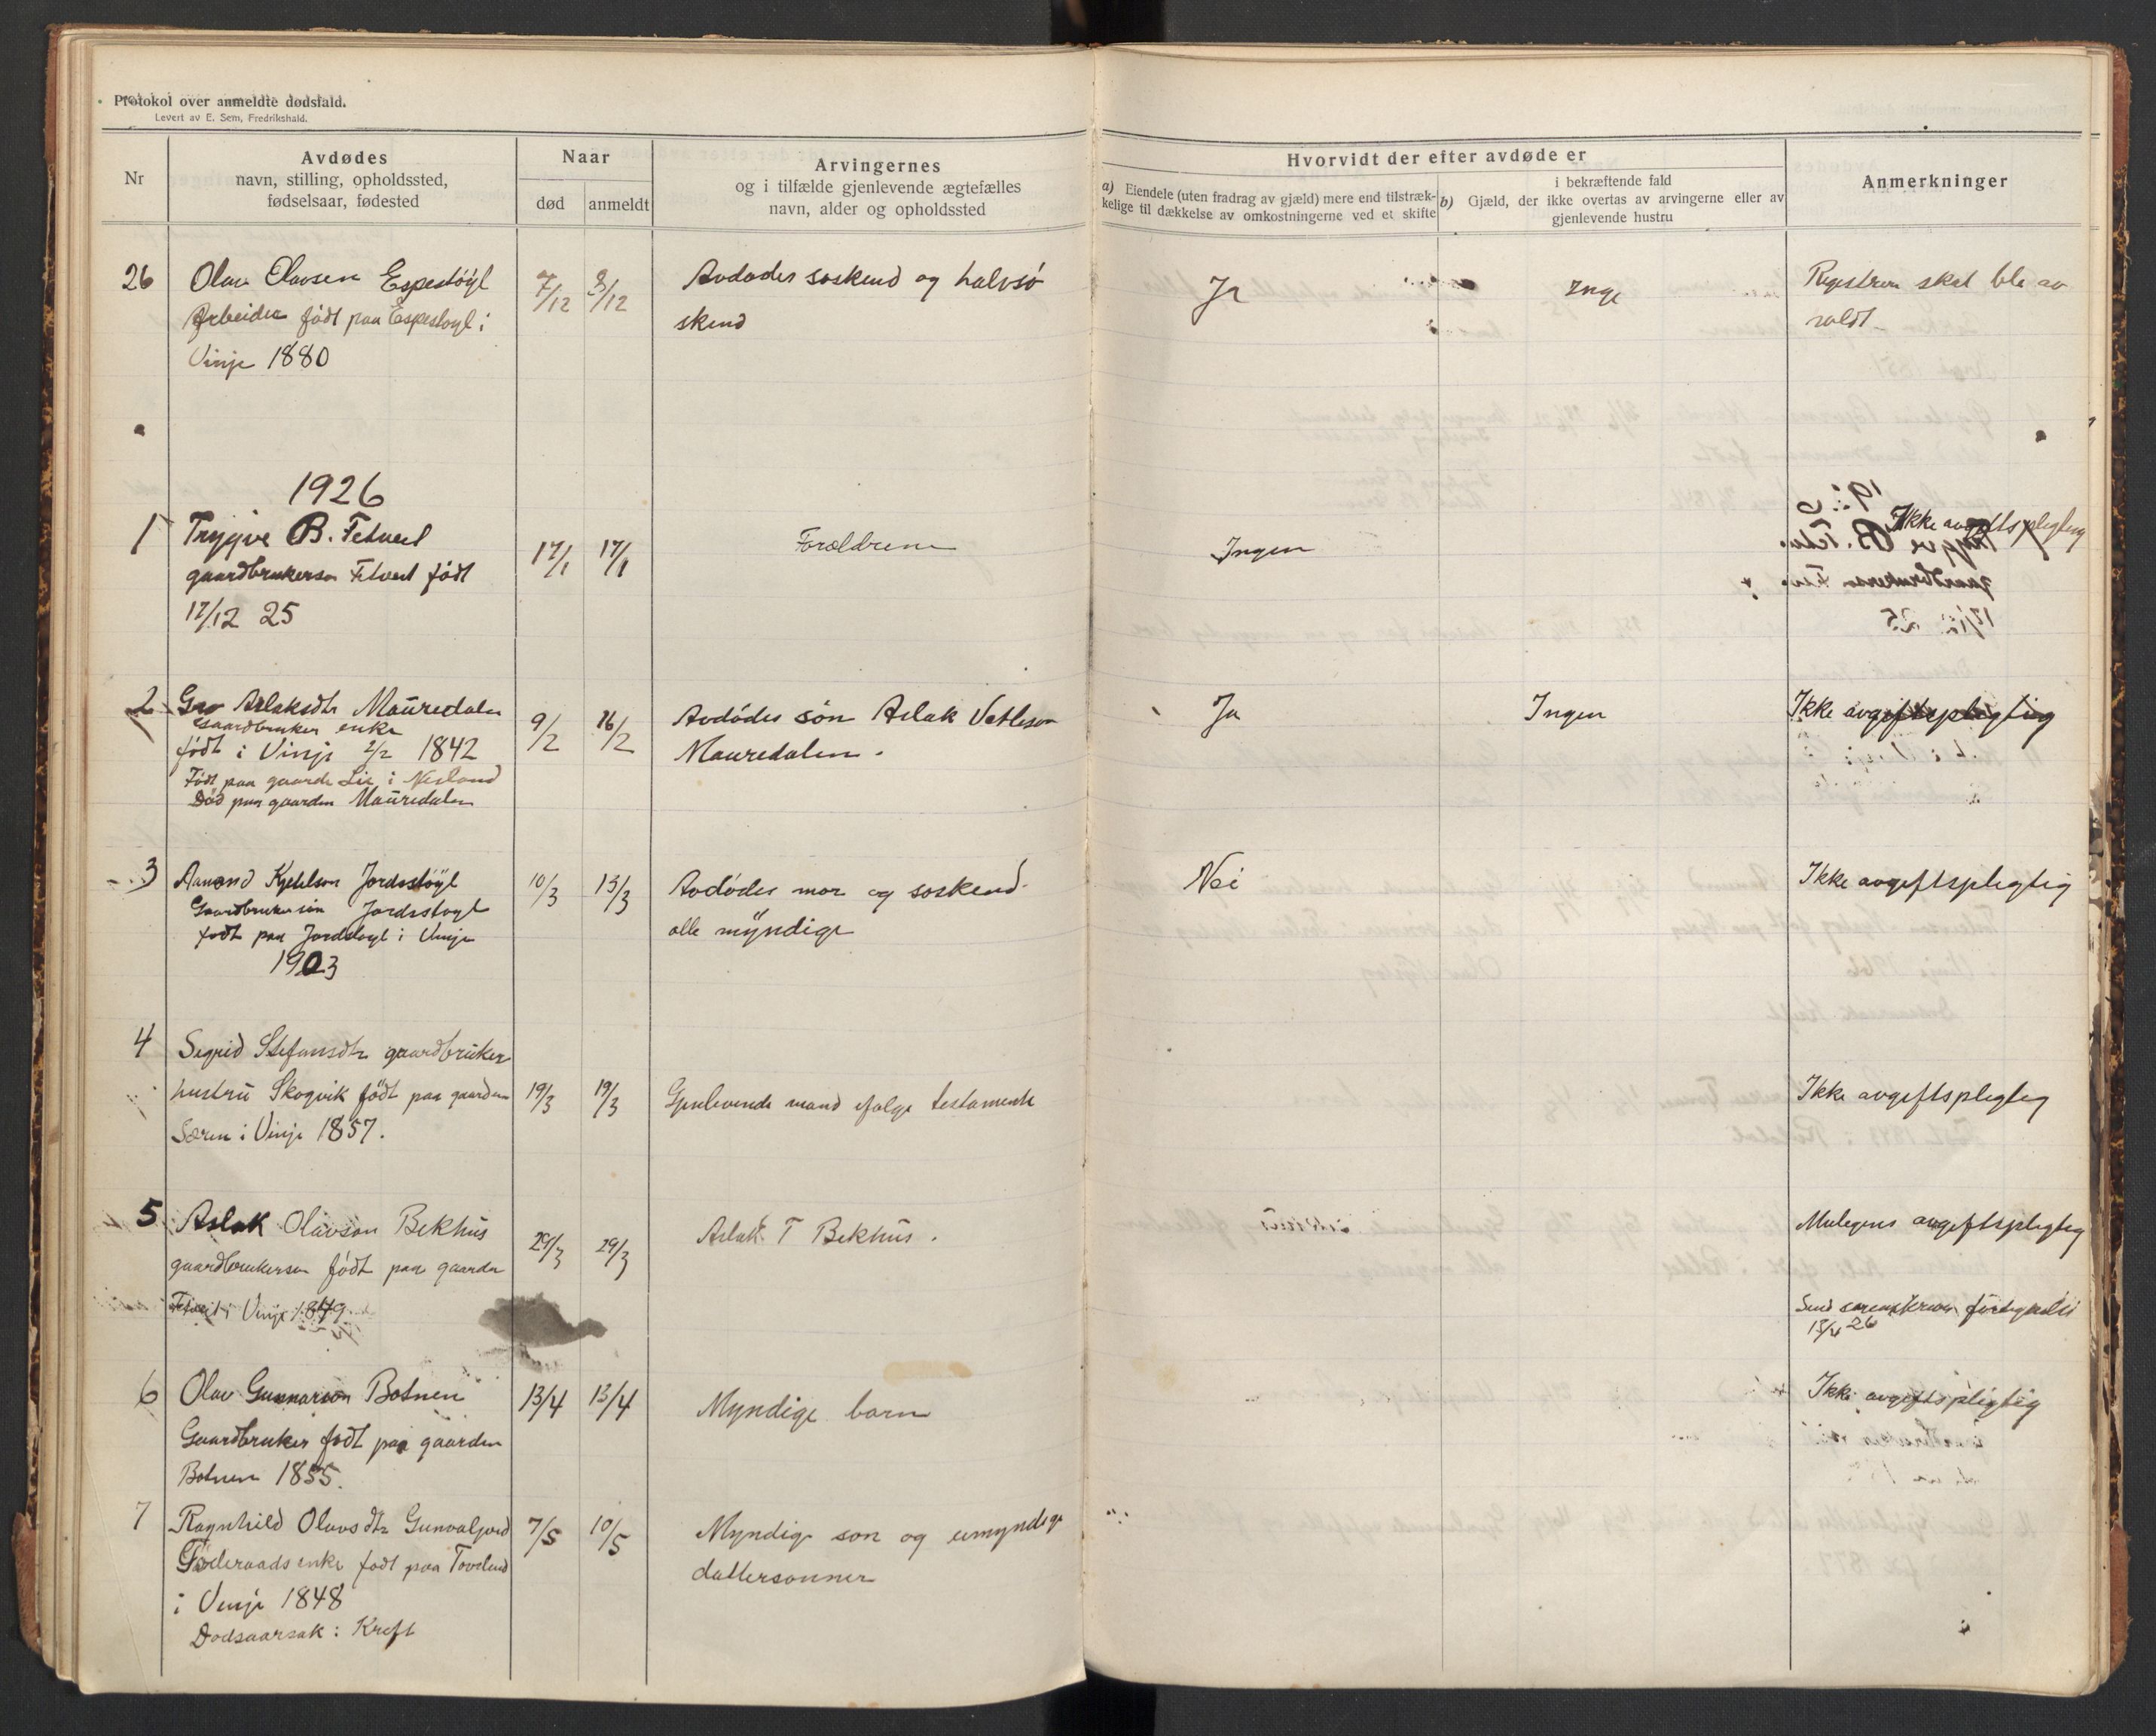 Protokol over anmeldte dødsfald.
Levert av E. Sem, Fredrikshald.
Nr
Avdødes
navn, stilling, opholdssted,
fødselsaar, fødested
Naar
død
anmeldt
Arvingernes
og i tilfælde gjenlevende ægtefælles
navn, alder og opholdssted
Hvorvidt der efter avdøde er
a) Eiendele (uten fradrag av gjæld) mere end tilstræk-
kelige til dækkelse av omkostningerne ved et skifte
i bekræftende fald
b) Gjæld, der ikke overtas av arvingerne eller av
gjenlevende hustru
Anmerkninger
26
Olav Olavsen Espestøyl
Arbeider født paa Espestøyl i
Vinje 1880
7/12
8/12
Avdødes søskend og halvsø
skend
Ja
Inge
Registrer skal ble av
holdt
1926
1
Trygve B. Fetveit
gaardbrukersøn Fetveit født
17/12 25
17/1
17/1
Forældrene
Ingen
Ikke avgiftspligtig
2
Gro Aslaksdtr Mauredalen
Gaardbruker enke
født i Vinje 2/2 1842
Født paa gaarden Lie i Nesland
Død paa gaarden Mauredalen
9/2
16/2
Avdødes søn Aslak Vetleson
Mauredalen.
Ja
Ingen
Ikke avgiftspligtig
3
Aanund Kjetilson Jordstøyl
Gaardbrukersøn Jordstøyl
født paa Jordstøyl i Vinje
1903
10/3
15/3
Avdødes mor og søskend
alle myndige
Nei
Ikke avgiftspligtig
4
Sigrid Stefansdtr gaardbruker
hustru Skogvik født paa gaarden
Særen i Vinje 1857.
19/3
19/3
Gjenlevende mand ifølge testamente
Ikke avgiftspligtig
5
Aslak Olavson Bekhus
gaardbrukersøn født paa gaarden
Fetveit i Vinje 1849
29/3
29/3
Aslak T Bekhus.
Mulegens avgiftspligtig
Send sorenskriveren fortegnelse
15/4 26
6
Olav Gunnarson Botnen
Gaardbruker født paa gaarden
Botnen 1855.
13/4
13/4
Myndige barn
Ikke avgiftspligtig
7
Ragnhild Olavsdtr Gunvaljord
Føderaadsenke født paa Tovelund
i Vinje 1848
Dødsaarsak: Kreft
7/5
10/5
Myndige søn og umyndige
dattersønner